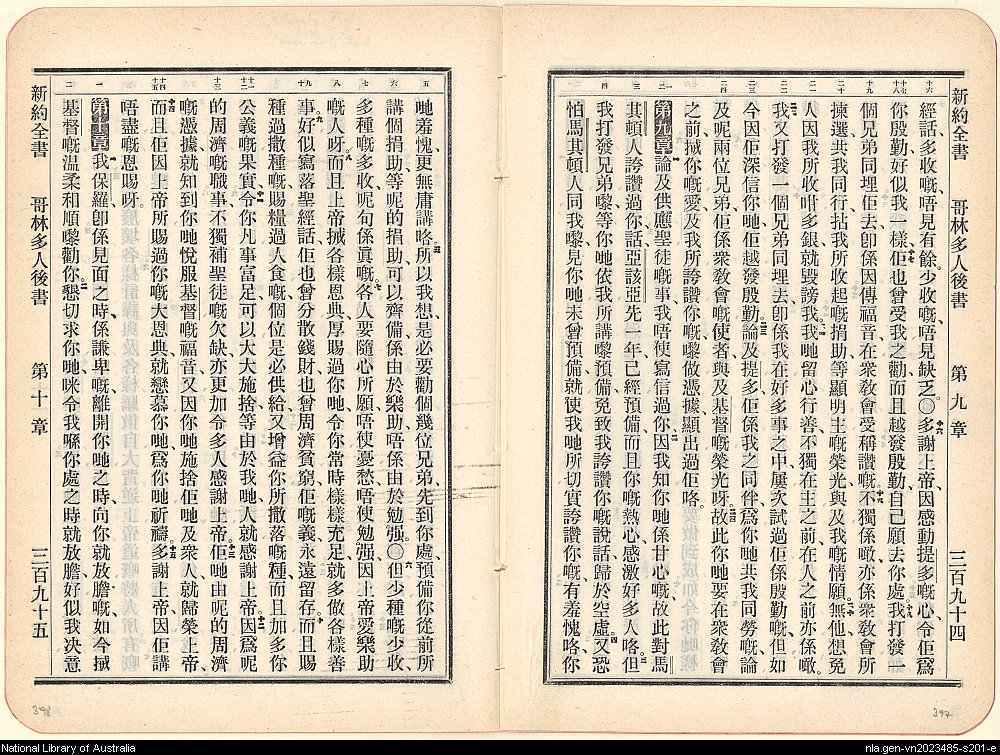 新約全書 哥林多人後書 第九章 三百九十四
經話、多收嘅、唔見有餘、少收嘅、唔見缺乏。○多謝上帝、因感動提多嘅心、令佢爲
你殷勤、好似我一樣、佢也曾受我之勸、而且越發殷勤、自己願去你處、我打發一
個兄弟同埋佢去、卽係因傳福音、在衆敎會受稱讚嘅、不獨係噉、亦係衆敎會所
揀選、共我同行、拈我所收起嘅捐助等、顯明主嘅榮光、與及我嘅情願、無他想、免
人因我所收咁多銀、就毀謗我、我哋留心行善、不獨在主之前、在人之前亦係噉、
我又打發一個兄弟同埋去、卽係我在好多事之中、屢次試過佢係殷勤嘅、但如
今因佢深信你哋、佢越發殷勤、論及提多、佢係我之同伴、爲你哋共我同勞嘅、論
及呢兩位兄弟、佢係衆敎會嘅使者、與及基督嘅榮光呀、故此你哋要在衆敎會
之前、搣你嘅愛、及我所誇讚你嘅、嚟做憑據顯出過佢咯。
第九章 論及供應聖徒嘅事、我唔使寫信過你、因我知你哋係甘心嘅、故此對馬
其頓人誇讚過你、話亞該亞先一年已經預備、而且你嘅熱心感激好多人咯、但
我打發兄弟嚟等你哋依我所講嚟預備、免致我誇讚你嘅說話歸於空虛、又恐
怕馬其頓人同我嚟、見你哋未曾預備、就使我哋所切實誇讚你嘅、有羞愧咯、你
397
哋羞愧、更無庸講咯、所以我想、是必要勸個幾位兄弟先到你處、預備你從前所
講個捐助等呢的捐助可以齊備、係由於樂助、唔係由於勉强。○但少種嘅少收
多種嘅多收、呢句係眞嘅、各人要隨心所願、唔使憂愁、唔使勉强、因上帝愛樂助
嘅人呀、而且上帝搣各樣恩典厚賜過你哋、令你常時樣樣充足、就多做各樣善
事、好似寫落聖經話、佢也曾分散錢財、也曾周濟貧窮、佢嘅義永遠留存、而且賜
種過撒種嘅、賜糧過人食嘅、個位是必供給又增益你所撒落嘅種、而且加多你
公義嘅果實、令你凡事富足、可以大大施捨、等由於我哋、人就感謝上帝、因爲呢
的周濟嘅職事、不獨補聖徒嘅欠缺、亦更加令多人感謝上帝、佢哋由呢的周濟
嘅憑據、就知到你哋悅服基督嘅福音、又因你哋施捨佢哋及衆人、就歸榮上帝、
而且佢因上帝所賜過你嘅大恩典、就戀慕你哋、爲你哋祈禱、多謝上帝、因佢講
唔盡嘅恩賜呀。
第十章 我保羅卽係見面之時係謙卑嘅、離開你哋之時、向你就放膽嘅、如今搣
基督嘅温柔和順嚟勸你、懇切求你哋咪令我喺你處之時就放膽、好似我决意
新約全書 哥林多人後書 第十章 三百九十五
398
National Library of Australia
nla.gen-vn2023485-s201-e